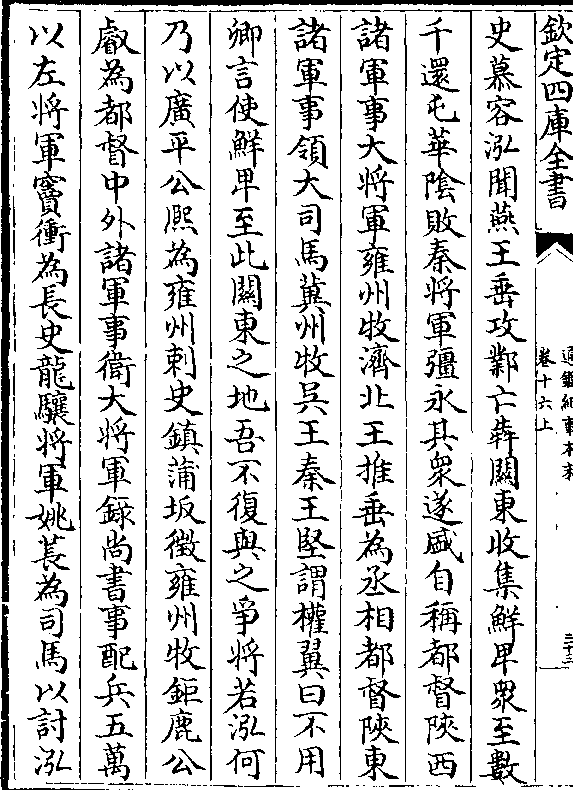 欽定四庫全書
通鑑紀事本末
卷十六上
三十三
史慕容泓聞燕王垂攻鄴亡奔關東收集鮮卑眾至數
千還屯華陰敗秦將軍彊永其眾遂盛自稱都督陜西
諸軍事大將軍雍州牧濟北王推垂為丞相都督陜東
諸軍事領大司馬冀州牧吳王秦王堅謂權翼曰不用
卿言使鮮卑至此關東之地吾不復與之爭將若泓何
乃以廣平公熙為雍州刺史鎮蒲坂徵雍州牧鉅鹿公
叡為都督中外諸軍事衛大將軍錄尚書事配兵五萬
以左將軍竇衝為長史龍驤將軍姚萇為司馬以討泓